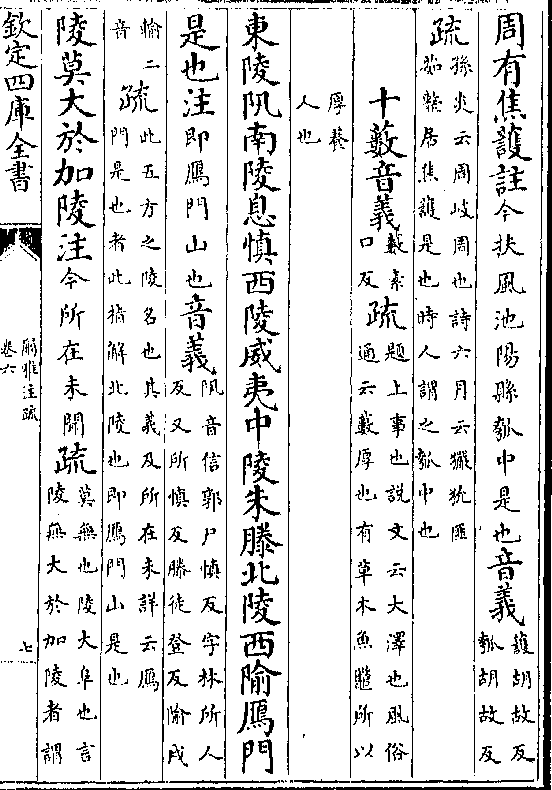 周有焦護註今扶風池陽縣瓠中是也音義護胡故反
瓠胡故反
疏孫炎云周岐周也詩六月云玁狁匪
茹整居焦護是也時人謂之瓠中也
十藪音義藪素
口反疏題上事也說文云大澤也風俗
通云藪厚也有草木魚鼈所以
厚養
人也
東陵阠南陵息慎西陵威夷中陵朱滕北陵西隃鴈門
是也注即鴈門山也音義阠音信郭尸慎反字林所人
反又所慎反滕徒登反隃戍
喻二
音疏此五方之陵名也其義及所在未詳云鴈
門是也者此猶解北陵也即鴈門山是也
陵莫大於加陵注今所在未聞疏莫無也陵大阜也言
陵無大於加陵者謂
欽定四庫全書
爾雅注疏
卷六
七